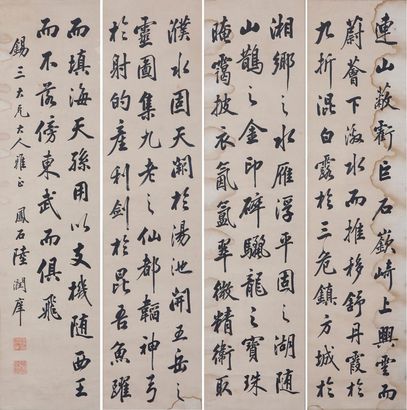 連山蔽虧巨石嶔崎上興雲而
蔚薈下激水而推移舒丹霞於
九折混白露於三危鎮方城於
湘鄉之水雁浮平固之湖隨
山鵲之金印碎驪龍之寶珠
晻靄披衣氤氳翠微精衛取
濮水固天淵於湯池開五岳之
靈圖集九老之仙都韜神弓
於射的產利劍於昆吾魚躍
而填海天孫用以支機隨西王
而不落傍東武而俱飛
錫三大兄大人雅正 鳳石陸潤庠